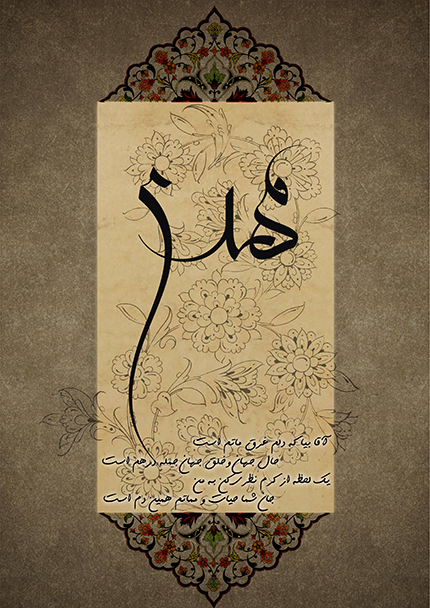 مهدی
آقا بیا که دلم غرق ماتم است
حال جهان و خلق جهان جمله درهم است
یک لحظه از کرم نظری کن به من
جان شما حیات و مماتم همین دم است